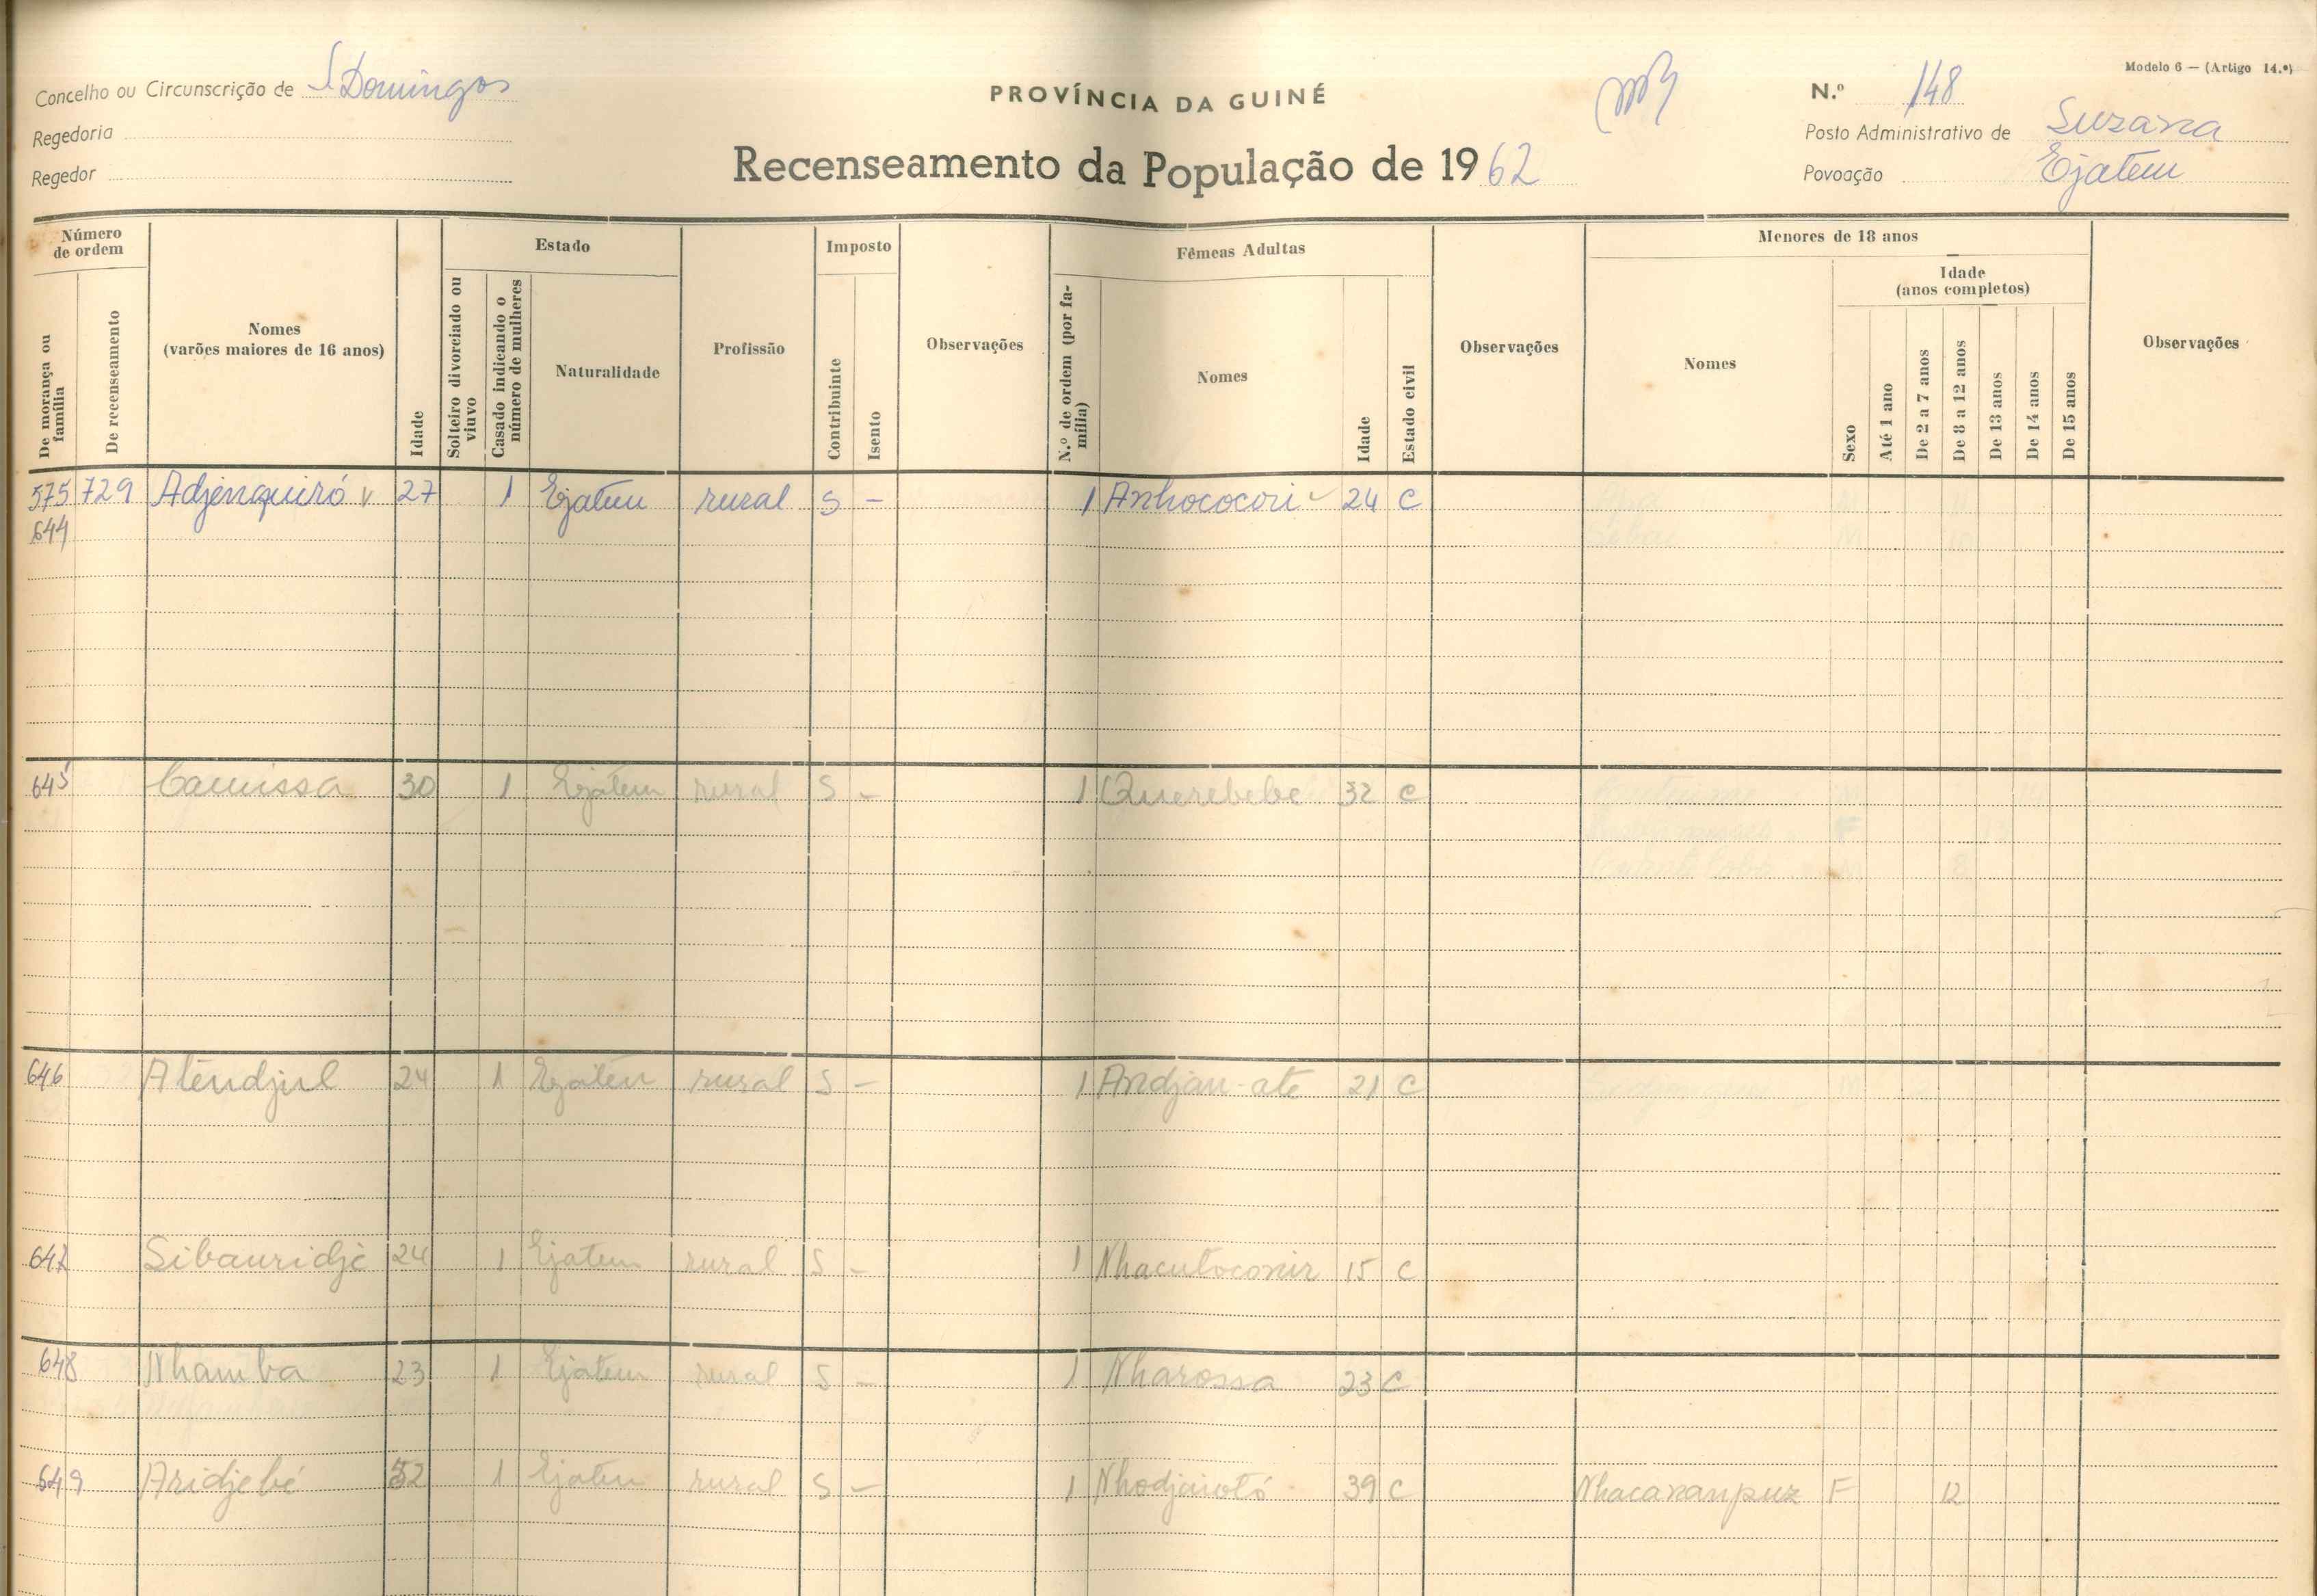 Concelho ou Circunscrição de S Domingos
Regedoria
Regedor
PROVÍNCIA DA GUINÉ
Recenseamento da População de 1962
Modelo 6 — (Artigo 14.º)
N.º 148
Posto Administrativo de Suzana
Povoação Ejatem
Número de ordem
De morança ou família
De recenseamento
Nomes
(varões maiores de 16 anos)
Idade
Estado
Solteiro divorciado ou viuvo
Casado indicando o número de mulheres
Naturalidade
Profissão
Imposto
Contribuinte
Isento
Observações
Fêmeas Adultas
N.º de ordem (por família)
Nomes
Idade
Estado civil
Observações
Menores de 18 anos
Nomes
Idade
(anos completos)
Sexo
Até 1 ano
De 2 a 7 anos
De 8 a 12 anos
De 13 anos
De 14 anos
De 15 anos
Observações
575 729 Adjenquiró v 27 1 Ejatem rural S — 1 Anhococori 24 C
644
645 Camissa 30 1 Ejatem rural S — 1 Querebebe 32 C
646 Atendjul 24 1 Ejatem rural S — 1 Andjau-ate 21 C
647 Sibauridjé 24 1 Ejatem rural S — 1 Nhacutoconir 15 C
648 Nhamba 23 1 Ejatem rural S — 1 Nharossa 23 C
649 Aridjebé 52 1 Ejatem rural S — 1 Nhodjaiotó 39 C Nhacananpuz F 12